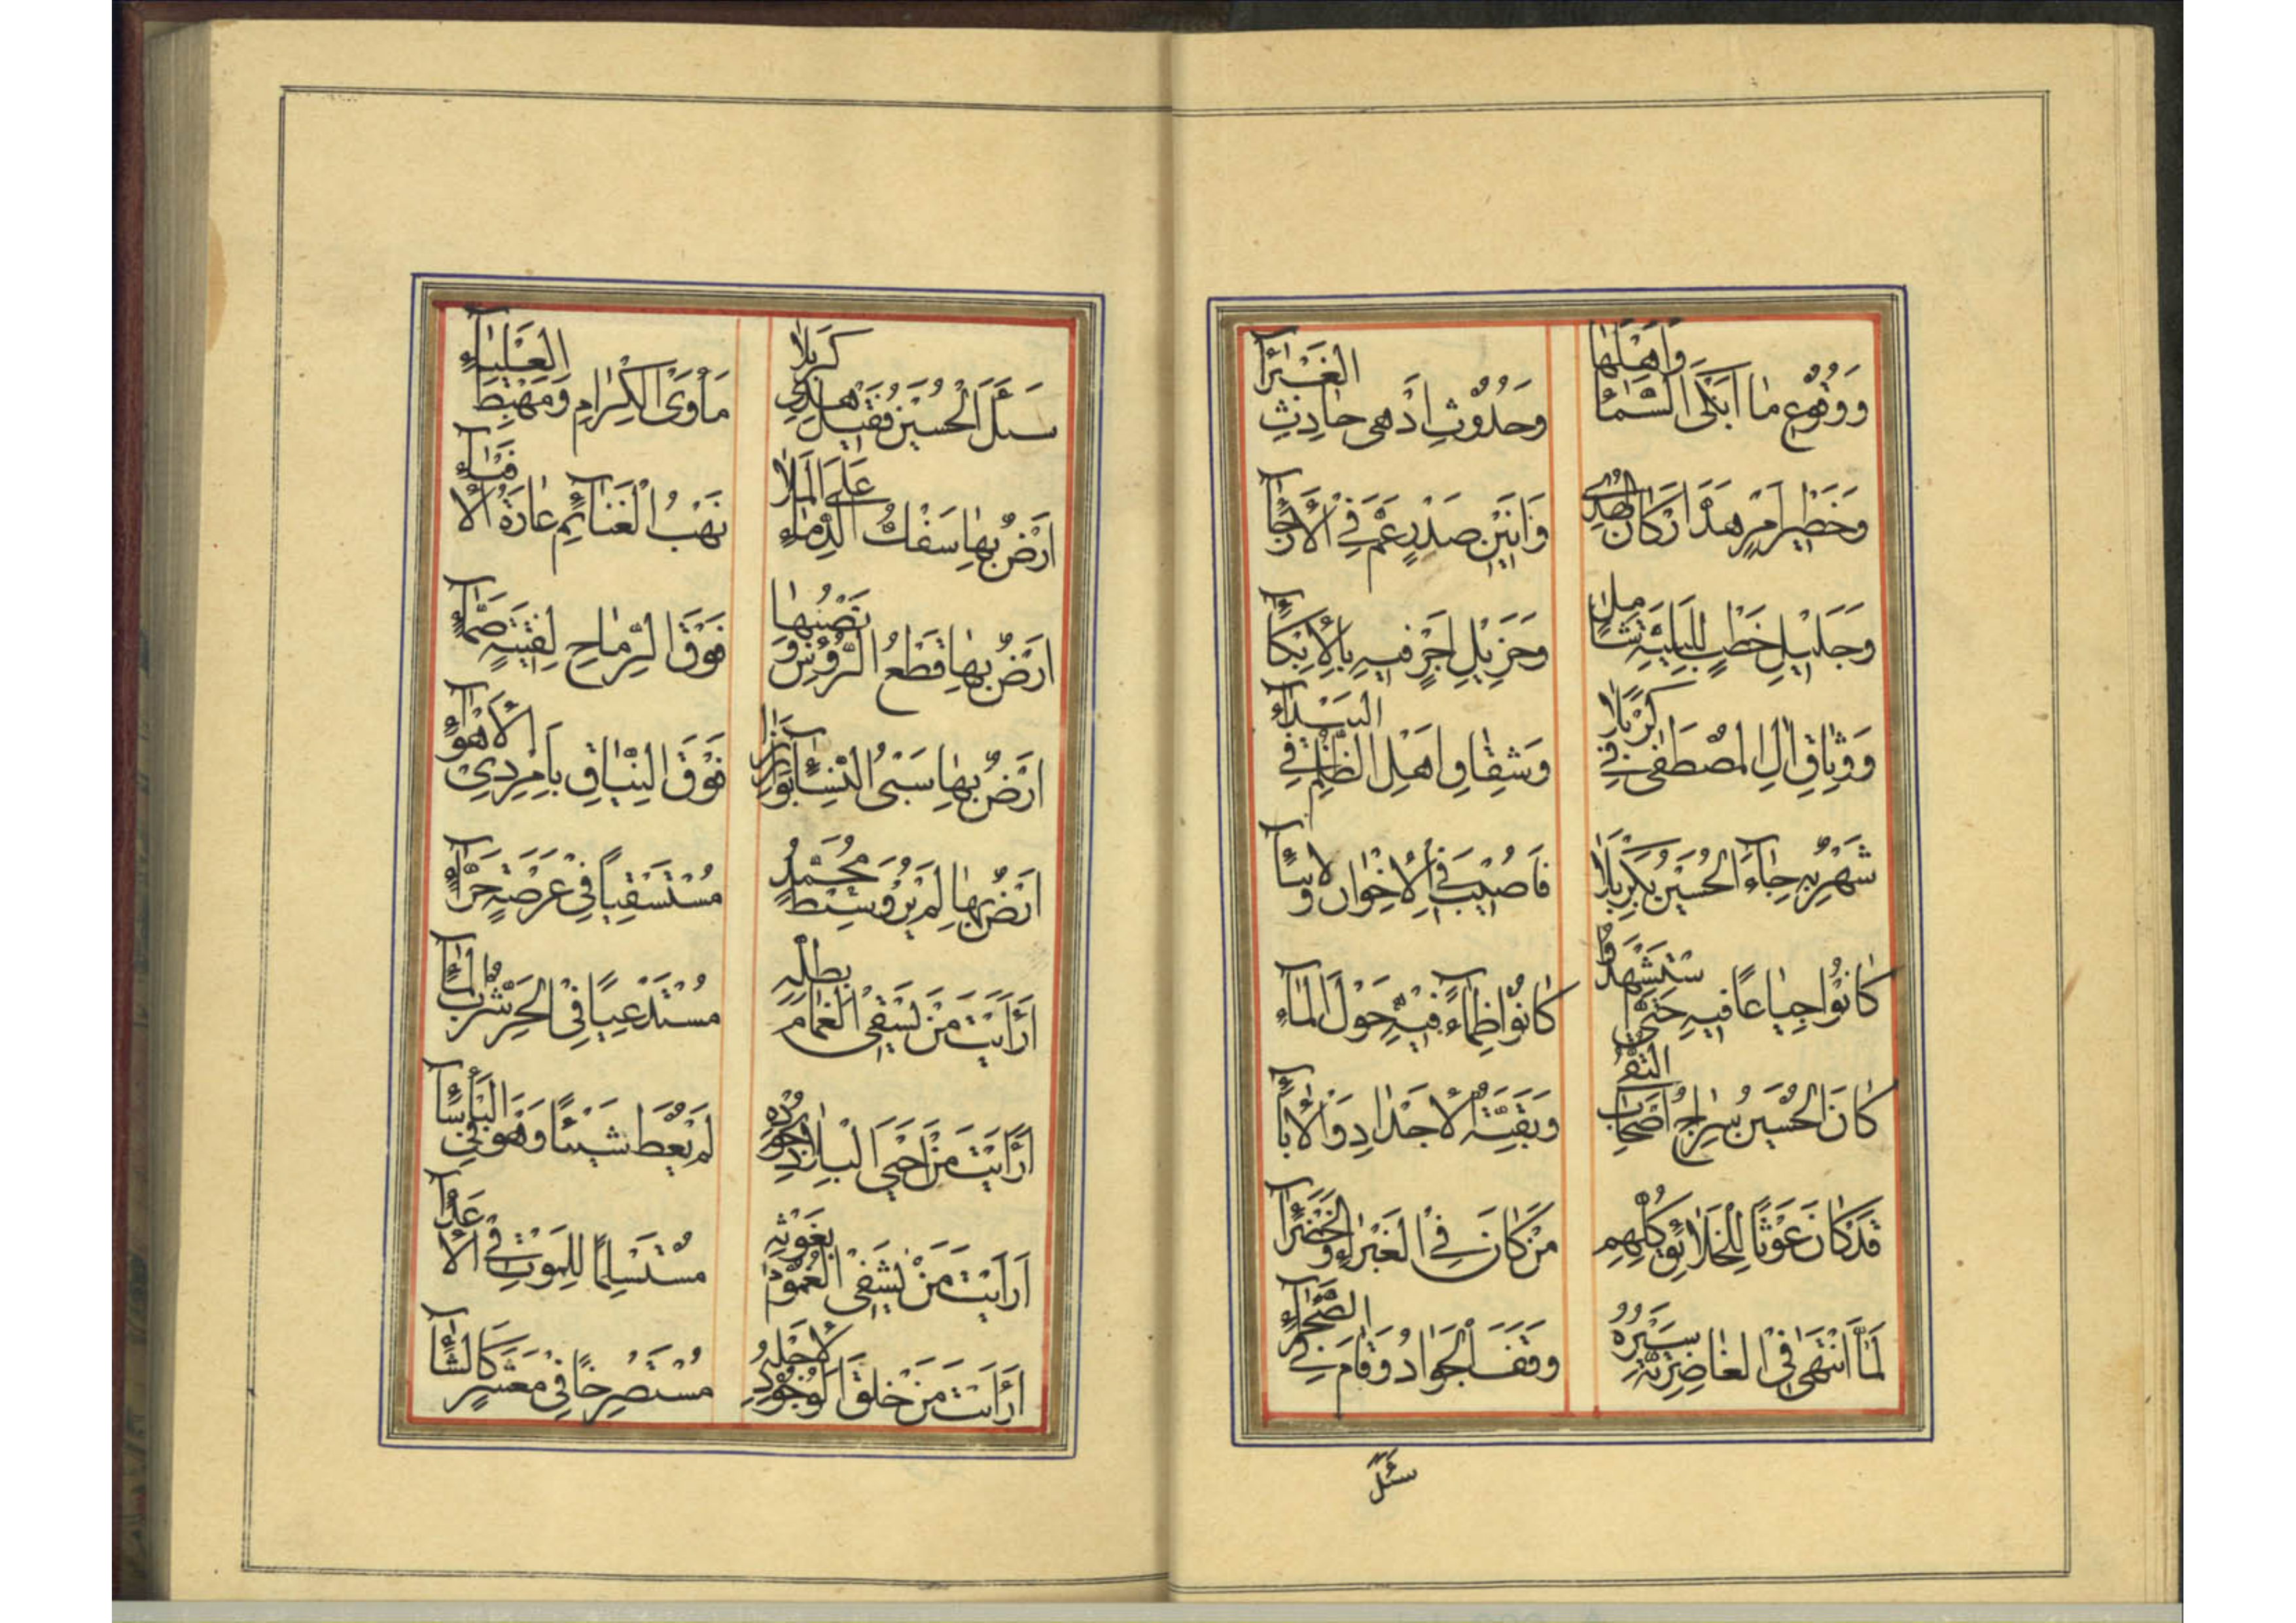 وَوُقُوعِ مٰا اَبْكَى السَّمٰاءَ وَاَهْلَهٰا
وَحُدُوثِ اَدْهىٰ حٰادِثِ الغَبْرٰاءِ
وَخَطِيرِ اَمْرٍ هَدَّ اَرْكٰانَ الهُدىٰ
وَاَنِينِ صَدْرٍ عَمَّ فِي الْاَرْجٰاءِ
وَجَلِيلِ خَطْبٍ لِلْبَلِيَّةِ شٰامِلٍ
وَجَزِيلِ اَجْرٍ فِيهِ بِالْاِبْكٰاءِ
وَوِثٰاقِ اٰلِ المُصْطَفىٰ فِي كَرْبَلٰا
وَشِقٰاقِ اَهْلِ الظُّلْمِ فِي البَيْدٰاءِ
شَهْرٌ بِهِ جٰاءَ الحُسَيْنُ بِكَرْبَلٰا
فَاُصِيبَ فِي الْاِخْوٰانِ وَ
كٰانُوا جِيٰاعًا فِيهِ حَتَّى اسْتُشْهِدُوا
كٰانُوا ظِمٰاءً فِيهِ حَوْلَ المٰاءِ
كٰانَ الحُسَيْنُ سِرٰاجُ اَصْحٰابِ التُّقىٰ
وَبَقِيَّةُ الْاَجْدٰادِ وَالْاٰبٰاءِ
قَدْ كٰانَ غَوْثًا لِلْخَلٰائِقِ كُلِّهِمْ
مَنْ كٰانَ فِي الغَبْرٰاءِ وَالخَضْرٰاءِ
لَمَّا انْتَهىٰ فِي الغٰاضِرِيَّةِ سَيْرُهُ
وَقَفَ الجَوٰادُ وَقٰامَ فِي الصَّحْرٰاءِ
سَئَلَ
سَئَلَ الْحُسَيْنُ فَقِيلَ هٰذِي كَرْبَلٰا
مَأْوَى الْكِرٰامِ وَمَهْبِطُ العَلْيٰاءِ
اَرْضٌ بِهٰا سَفْكُ الدِّمٰاءِ عَلَى المَلٰا
نَهْبُ الْغَنٰائِمِ غٰارَةُ الْاُ
اَرْضٌ بِهٰا قَطْعُ الرُّؤُسِ وَنَصْبُهٰا
فَوْقَ الرِّمٰاحِ لِفِتْيَةٍ
اَرْضٌ بِهٰا سَبْيُ النِّسٰاءِ بَوٰارِزًا
فَوْقَ النِّيٰاقِ بِاَمْرِ ذِي الْاَهْوٰاءِ
اَرْضٌ بِهٰا لَمْ يُرْوَ سِبْطُ مُحَمَّدٍ
مُسْتَسْقِيًا فِي عَرْصَةٍ حَرّٰاءِ
اَرَاَيْتَ مَنْ يَسْقِي الغَمٰامَ بِطَلِّهِ
مُسْتَدْعِيًا فِي الحَرِّ شُرْبَ المٰاءِ
اَرَاَيْتَ مَنْ اَحْيَى البِلٰادَ بِجُودِهِ
لَمْ يُعْطَ شَيْئًا وَهُوَ فِي البَأْسٰاءِ
اَرَاَيْتَ مَنْ يَشْفِي بِغَوْثِهِ
مُسْتَسْلِمًا لِلْمَوْتِ فِي الْاَعْدٰاءِ
اَرَاَيْتَ مَنْ خُلِقَ الوُجُودُ لِاَجْلِهِ
مُسْتَصْرِخًا فِي مَعْشَرٍ كَالشّٰاءِ